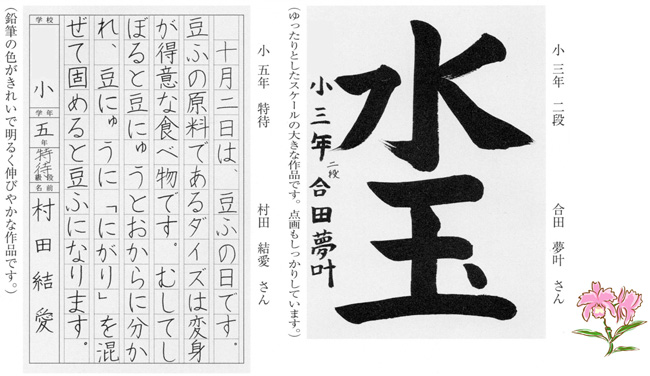 小 三年　二段　合田　夢叶　さん
水玉
小三年 二段 合田夢叶
（ゆったりとしたスケールの大きな作品です。点画もしっかりしています。）
小 五年　特待　村田　結愛　さん
十月二日は、豆ふの日です。
豆ふの原料であるダイズは変身
が得意な食べ物です。むしてし
ぼると豆にゅうとおからに分か
れ、豆にゅうに「にがり」を混
ぜて固めると豆ふになります。
学校 小 学年 五年 特待 級段 名前 村田結愛
（鉛筆の色がきれいで明るく伸びやかな作品です。）